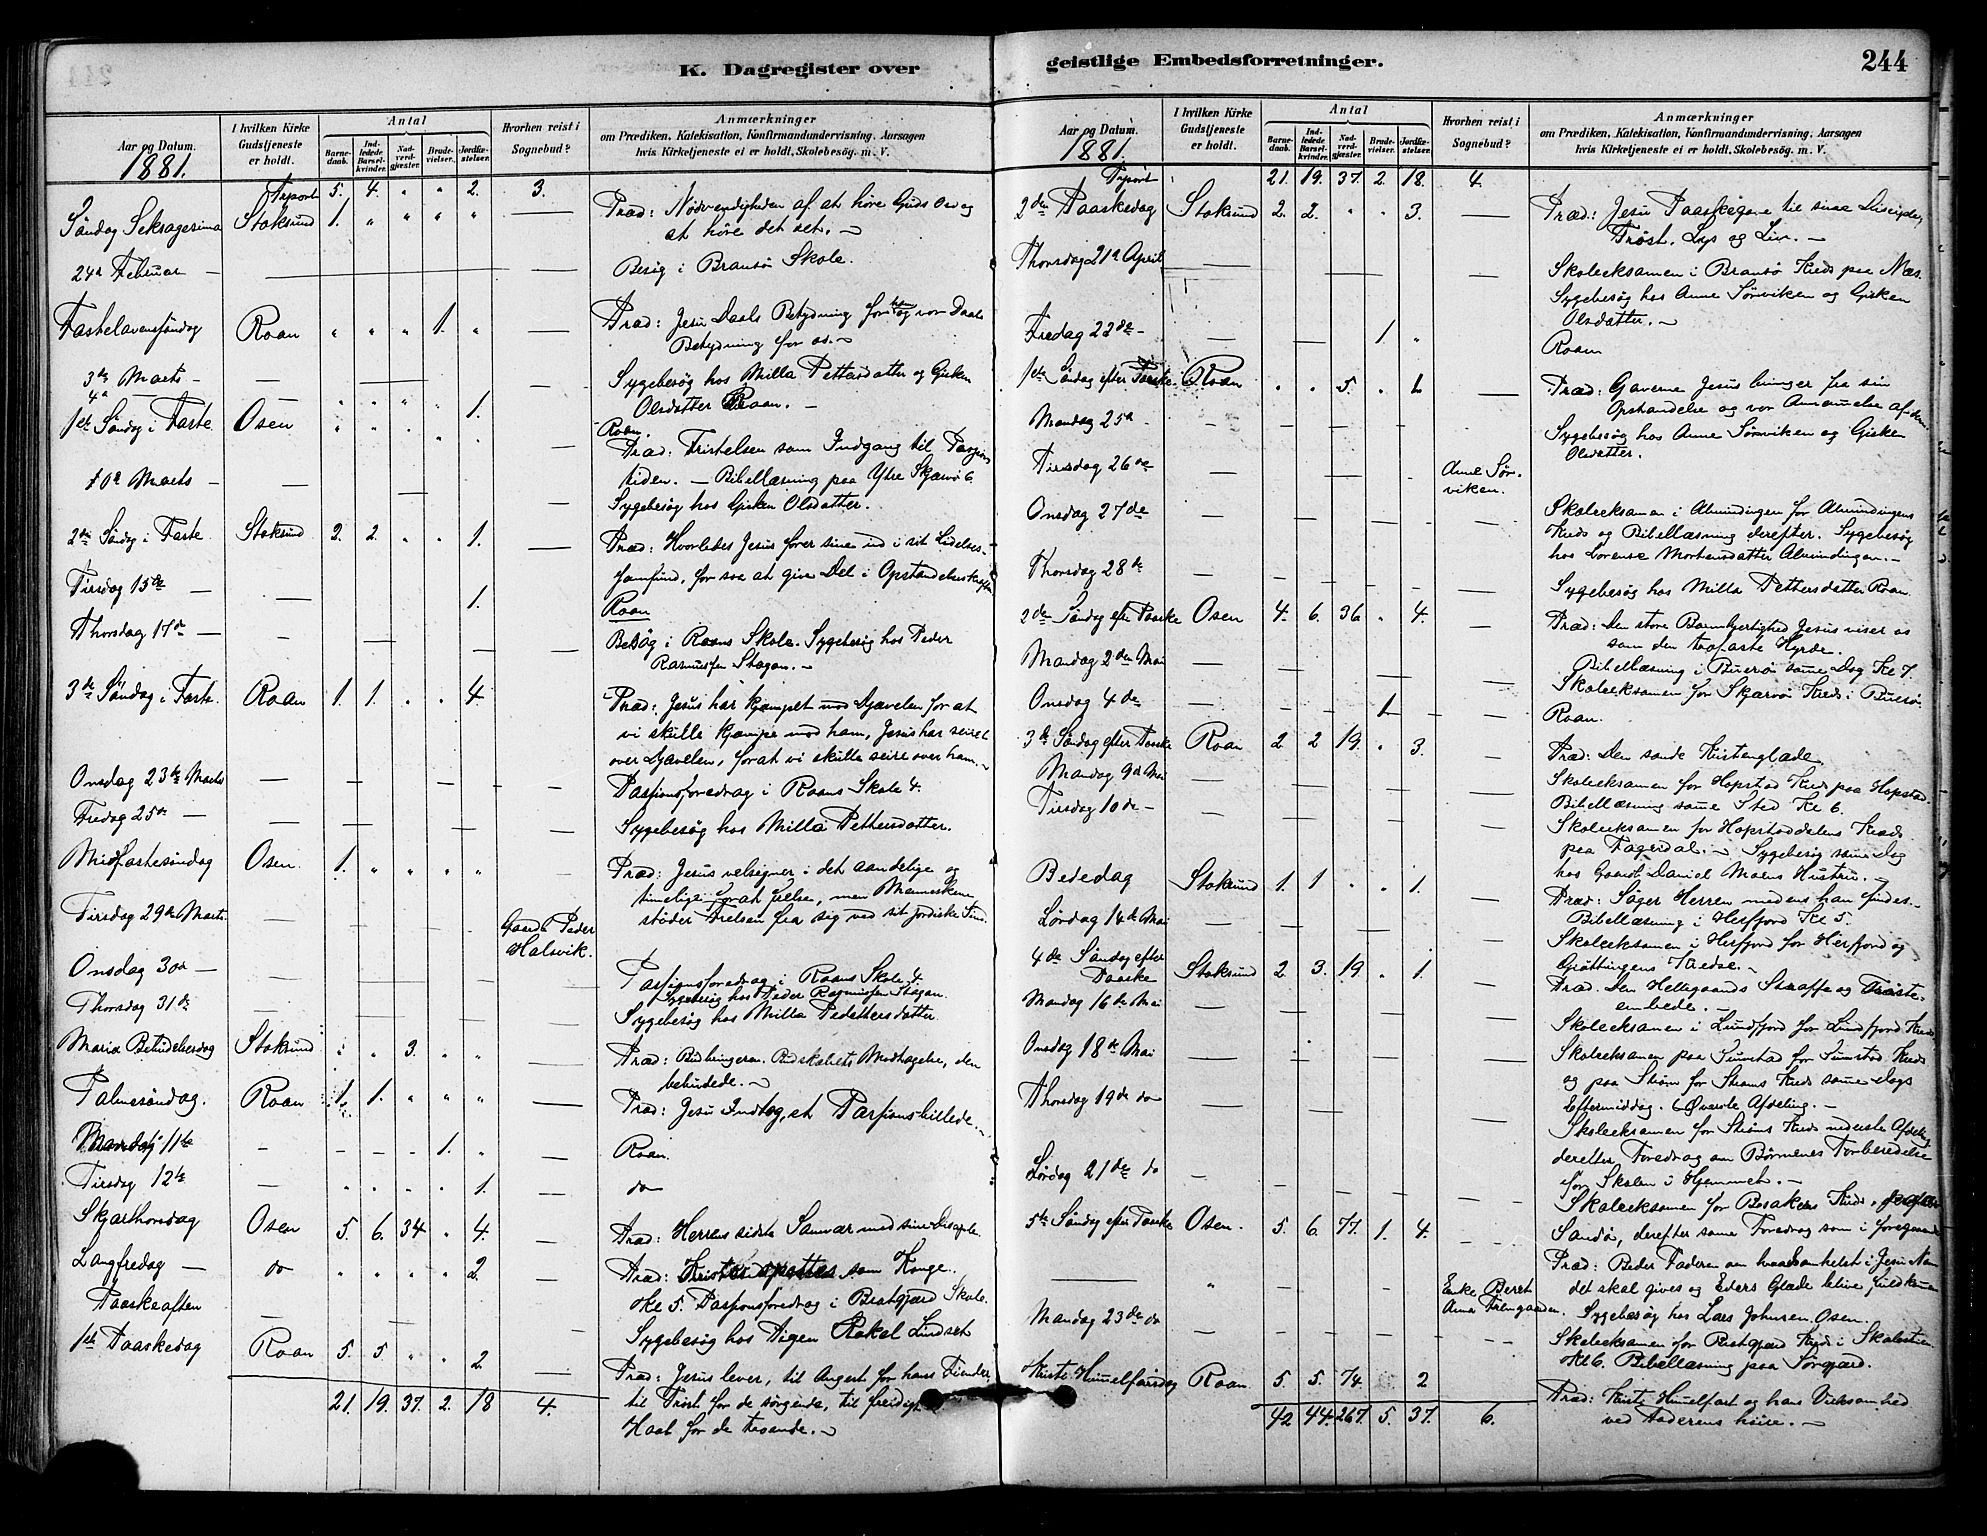 K. Dagregister over
geistlige Embedsforretninger.
244
Aar og Datum.
1881.
I hvilken Kirke
Gudstjeneste
er holdt.
Antal
Barne-
daab.
Ind-
ledede
Barsel-
kvinder.
Nad-
verd-
gjæster.
Brude-
vielser.
Jordfæ-
stelser.
Hvorhen reist i
Sognebud?
Anmærkninger
om Prædiken, Katekisation, Konfirmandundervisning, Aarsagen
hvis Kirketjeneste ei er holdt, Skolebesøg. m. V.
Trport 5. 4. " " 2. 3.
Søndag Seksagesima Stoksund 1. " " " " Præd: Nødvendigheden af at høre Guds Ord og
at høre det ret. —
24de Februar — Besøg i Bransø Skole.
Fastelavenssøndag Roan " " " 1. " Præd: Jesu Daabs Betydning for ham og vor Daabs
Betydning for os. —
3die Marts — Sygebesøg hos Milla Pettersdatter og Gjeken
Olsdatter Roan. —
4de — " " " " 1. Roan.
1ste Søndag i Faste Osen " " " " " Præd: Fristelsen som Indgang til Passions
tiden. — Bibellæsning paa Ytre Skjærvø 6.
10de Marts — Sygebesøg hos Gjeken Olsdatter.
2den Søndag i Faste Stoksund 2. 2. " " 1. Præd: Hvorledes Jesus fører sine ind i sit Lidelses-
samfund, for saa at give Del i Opstandelseskraften
Tirsdag 15de — 1. Roan
Thorsdag 17de — Besøg i Roans Skole. Sygebesøg hos Peder
Rasmussen Stagan. —
3die Søndag i Faste Roan 1. 1. " " 4. Præd: Jesus har kjæmpet mod Djævelen for at
vi skulle kjæmpe mod ham, Jesus har seiret
over Djævelen, forat vi skulle seire over ham. —
Onsdag 23de Marts — Passionsforedrag i Roans Skole 4.
Fredag 25de — Sygebesøg hos Milla Pettersdatter.
Midfastesøndag Osen 1. " " " " Præd: Jesus velsigner i det aandelige og
timelige forat frelse, men Menneskene
støder Frelsen fra sig ved sit jordiske Sind.
Tirsdag 29de Marts. — Gaardb. Peder
Halsvik.
Onsdag 30de — Passionsforedrag i Roans Skole 4.
Sygebesøg hos Peder Rasmussen Stagan.
Thorsdag 31de — Sygebesøg hos Milla Pedettersdatter
Maria Bebudelsesdag Stoksund " " 3. " " Præd: Budbringeren. Budskabets Modtagelse, den
bebudede. —
Palmesøndag. Roan 1. 1. " " " Præd: Jesu Indtog, et Passionsbillede. —
Mandag 11te — 1. Roan.
Tirsdag 12te — " " " " 1. do
Skjærthorsdag Osen 5. 6. 34 " 4. Præd: Herrens sidste Samvær med sine Disciple.
Langfredag — do " " " " 2. Præd: som Konge.
Kl 5. Passionsforedrag i Bratgjærd Skole.
Paaskeaften — Sygebesøg hos Pigen Rakel Lindset
1ste Paaskedag Roan 5. 5 " " 2 Præd: Jesus lever, til Angest for hans Fiender,
til Trøst for de sørgende, til freidigt
Haab for de troende. —
21. 19. 37. 2. 18 4.
Aar og Datum.
1881.
I hvilken Kirke
Gudstjeneste
er holdt.
Antal
Barne-
daab.
Ind-
ledede
Barsel-
kvinder.
Nad-
verd-
gjæster.
Brude-
vielser.
Jordfæ-
stelser.
Hvorhen reist i
Sognebud?
Anmærkninger
om Prædiken, Katekisation, Konfirmandundervisning, Aarsagen
hvis Kirketjeneste ei er holdt, Skolebesøg. m. V.
Trport 21. 19. 37. 2. 18. 4.
2den Paaskedag Stoksund 2. 2. " " 3. — Præd: Jesu Paaskegave til sine Disciple,
Trøst, Lys og Liv. —
Thorsdag 21de April — Skoleeksamen i Bransø Kreds paa Næs.
Sygebesøg hos Anne Sørviken og Gjeken
Olsdatter. —
Fredag 22de — 1 " Roan
1ste Søndag efter Paaske. Roan " " 5. " 1 Præd: Gaverne Jesus bringer fra sin
Opstandelse og vor Annammelse af dem.
Mandag 25de — Sygebesøg hos Anne Sørviken og Gjeken
Olsdatter.
Tirsdag 26de — Anne Sør-
viken.
Onsdag 27de — Skoleeksamen i Almindingen for Almindingens
Kreds og Bibellæsning derefter. Sygebesøg
hos Lorense Mortensdatter Almindingen. —
Thorsdag 28de — Sygebesøg hos Milla Pettersdatter Roan.
2den Søndag efter Paaske Osen 4. 6. 36 " 4. Præd: Den store Barmhjertighed Jesus viser os
som den trofaste Hyrde.
Bibellæsning i Buesø samme Dag Kl 7.
Mandag 2den Mai — Skoleeksamen for Skjærvø Kreds i Buesø.
Onsdag 4de — 1 Roan.
3die Søndag efter Paaske Roan 2 2 19. " 3. Præd: Den sande Kristenglæde.
Mandag 9de Mai — Skoleeksamen for Hopstad Kreds paa Hopstad.
Bibellæsning samme Sted Kl 6.
Tirsdag 10de — Skoleeksamen for Hopstaddalens Kreds
paa Fagerdal. — Sygebesøg samme Dag
hos Gaardb. Daniel Moens Hustru. —
Bededag Stoksund 1. 1 " " 1. Præd: Søger Herren medens han findes. —
Bibellæsning i Herfjord Kl 5.
Lørdag 14de Mai — Skoleeksamen i Herfjord for Herfjord og
Grøttingens Kredse. —
4de Søndag efter
Paaske Stoksund 2. 3. 19 " 1. Præd. Den Helligaands Straffe og Trøste-
embede. —
Mandag 16de Mai — Skoleeksamen i Lundfjord for Lundfjord Kreds
Onsdag 18de Mai — Skoleeksamen paa Sumstad for Sumstad Kreds
og paa Strøm for Strøms Kreds samme Dags
Eftermiddag. Øverste Afdeling. —
Thorsdag 19de do — Skoleeksamen for Strøms Kreds nederste Afdeling
derefter Foredrag om Børnenes Forberedelse
for Skolen i Hjemmet. —
Lørdag 21de do — Skoleeksamen for Besakers Kreds,
Sandø, derefter samme Foredrag som i foregaaende
5te Søndag efter Paaske Osen. 5. 6. 77. 1. 4. Præd: Beder Faderen om hvadsomhelst i Jesu Navn
det skal gives og Eders Glæde blive fuldkommen
" Enke Beret
Anna Sygebesøg hos Lars Johnsen Osen.
Mandag 23de do — Skoleeksamen for Bratgjærd Kreds i Skolestuen
Kl 6. Bibellæsning paa Sørgjærd.
Kristi Himmelfartsdag Roan 5. 5. 74. 2 Præd: Kristi Himmelfart og hans Virksomhed
ved Faderens høire. —
42 44. 267. 5. 37. 6.